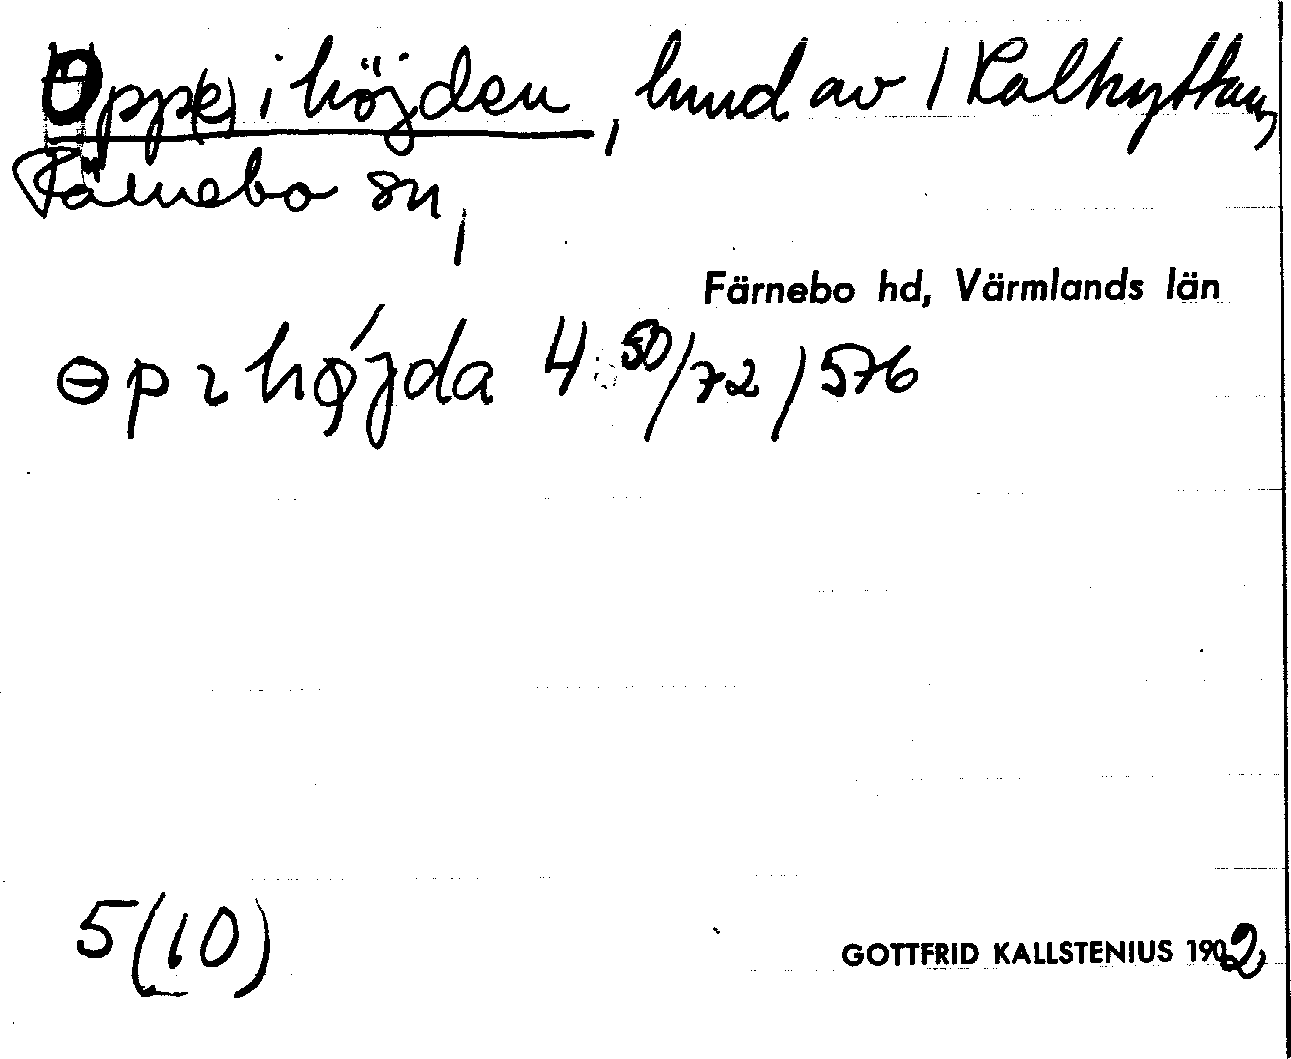 Opp(e) i höjden, hmd av 1 Kalhyttan,
Färnebo sn,
Färnebo hd, Värmlands län
ɵp ɩ hǿjda 4:50/72/576
5(10)
GOTTFRID KALLSTENIUS 1902